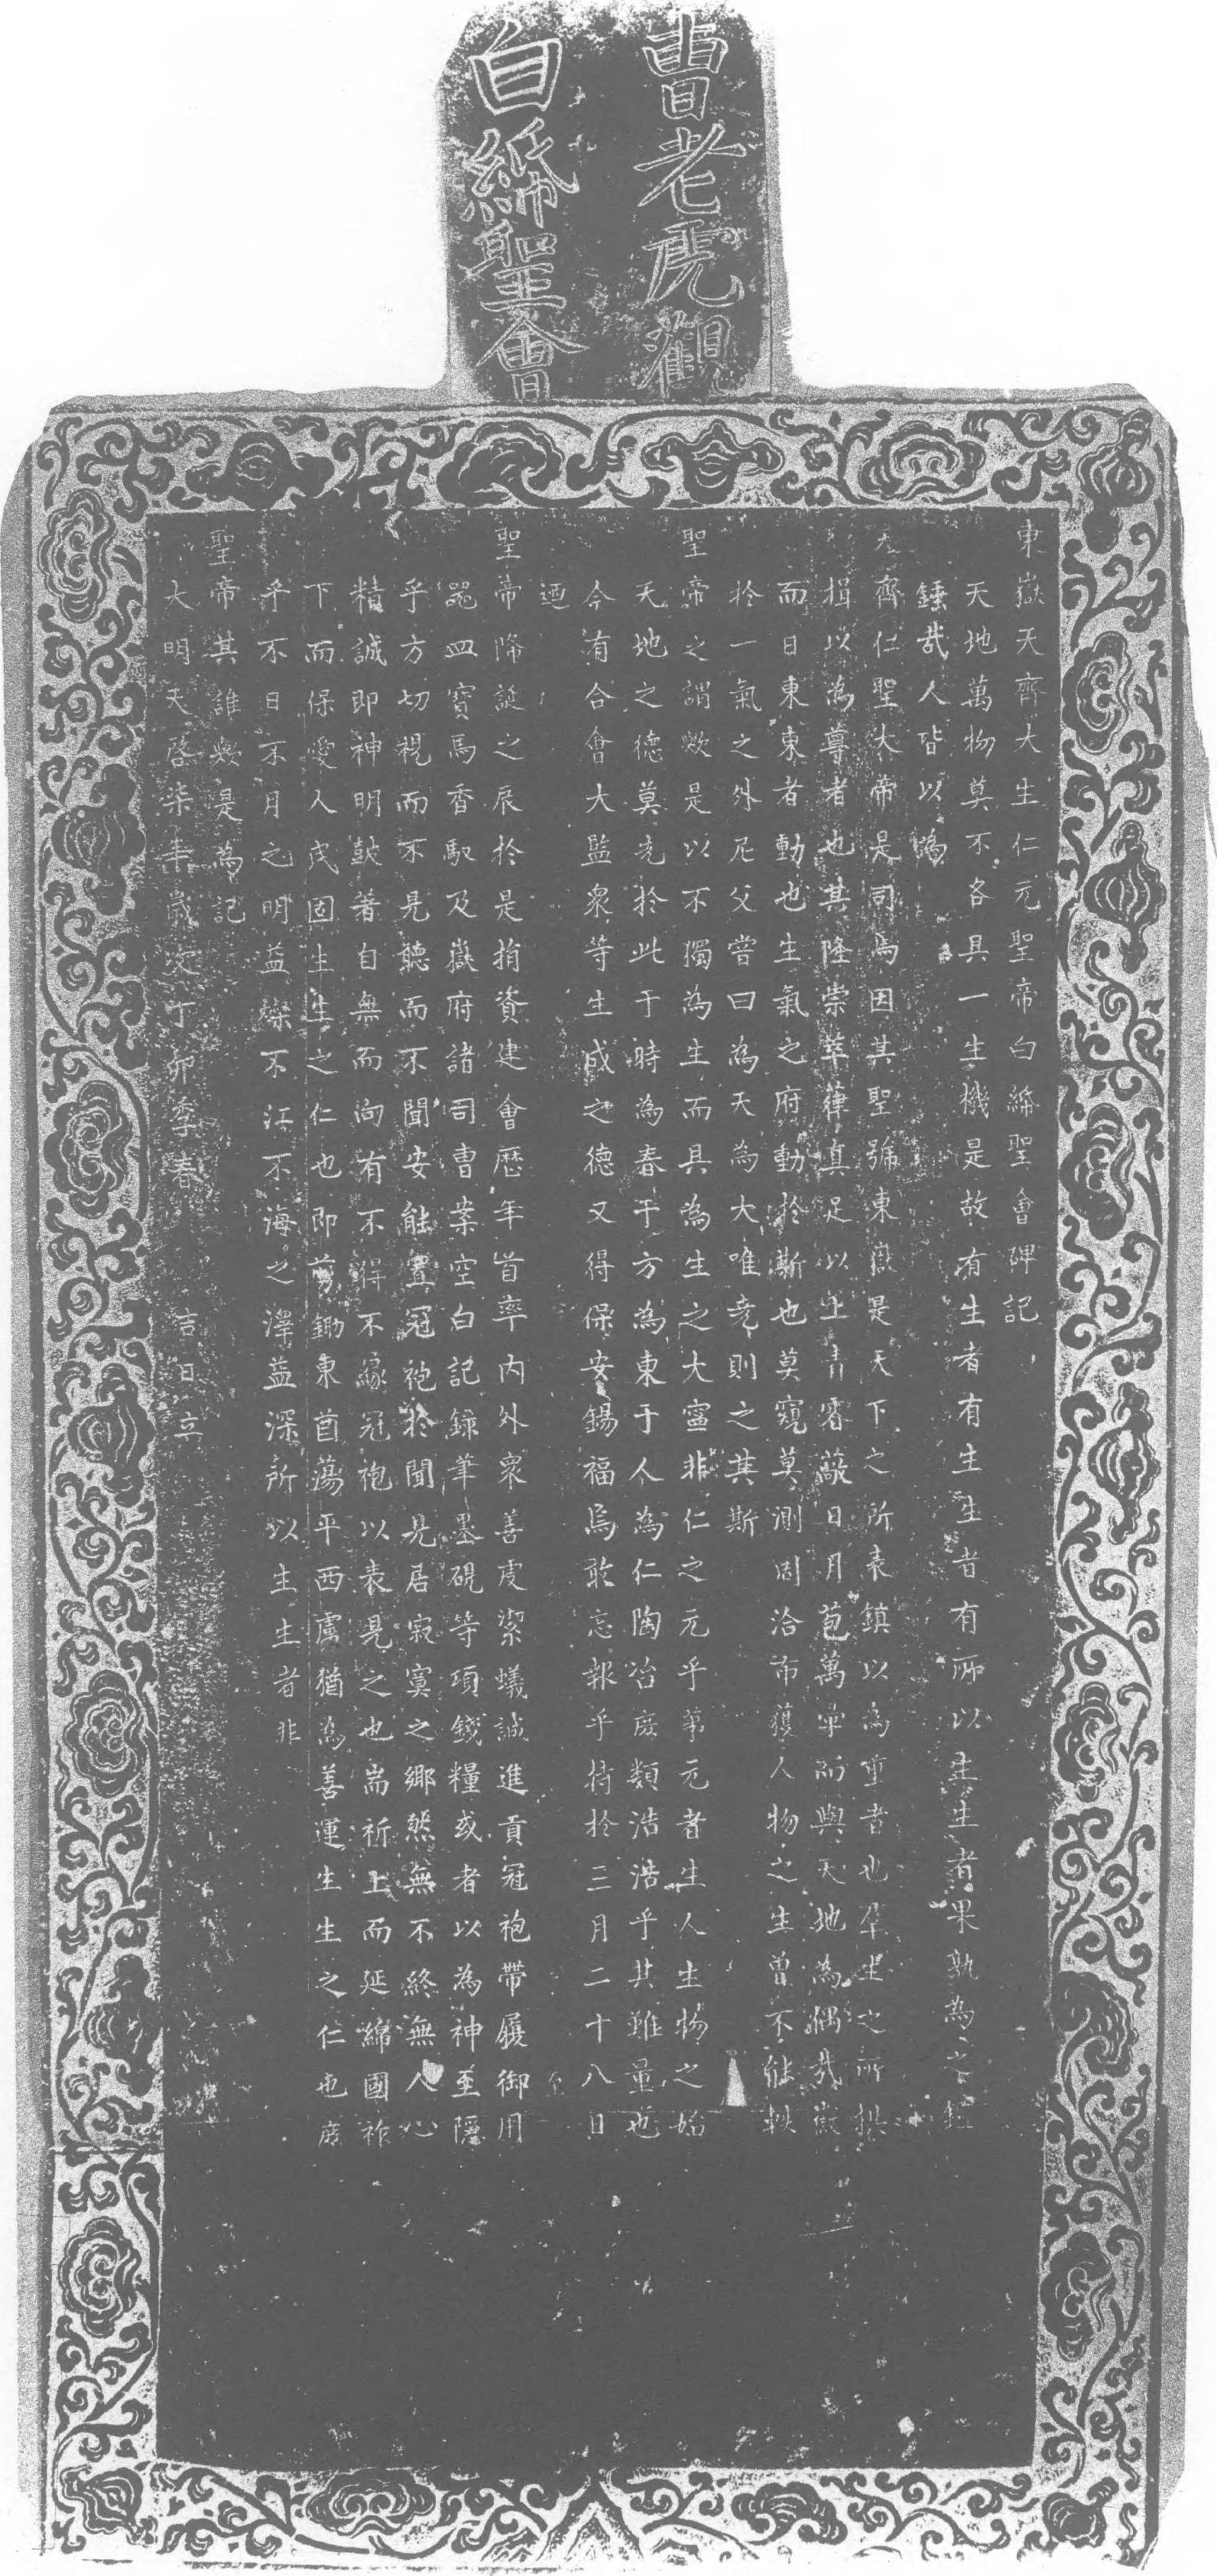 曹老虎觀
白紙聖會
東嶽天齊大生仁元聖帝白紙聖會碑記
天地萬物莫不各具一生機是故有生者有生生者有所以生生者果孰為之鈕
錘哉人皆以為
天齊仁聖大帝是司焉因其聖號東嶽是天下之所表鎮以為重者也羣生之所拱
揖以為尊者也其隆崇萃嵂真足以上青霄蔽日月苞萬彙而與天地為耦哉嶽
而曰東東者動也生氣之府動於斯也莫窺莫測周洽布獲人物之生曾不能軼
於一氣之外尼父嘗曰為天為大唯堯則之其斯
聖帝之謂歟是以不獨為生而具為生之大寔非仁之元乎第元者生人生物之始
天地之德莫先於此于時為春于方為東于人為仁陶冶庶類浩浩乎其難量也
今有合會大監眾等生成之德又得保安錫福烏敢忘報乎特於三月二十八日
迺
聖帝降誕之辰於是捐資建會歷年首率內外眾善虔潔蟻誠進貢冠袍帶履御用
器皿寶馬香馭及嶽府諸司曹案空白記錄筆墨硯等項錢糧或者以為神至隱
乎方切視而不見聽而不聞安能置冠袍於聞見居寂寞之鄉然無不終無人心
精誠即神明鼓著自無而向有不得不緣冠袍以表見之也耑祈上而延綿國祚
下而保愛人民固生生之仁也即剪鋤東酋蕩平西虜猶為善運生生之仁也庶
乎不日不月之明益燦不江不海之澤益深所以生生者非
聖帝其誰歟是為記
大明天啓柒年歲次丁卯季春　吉日立